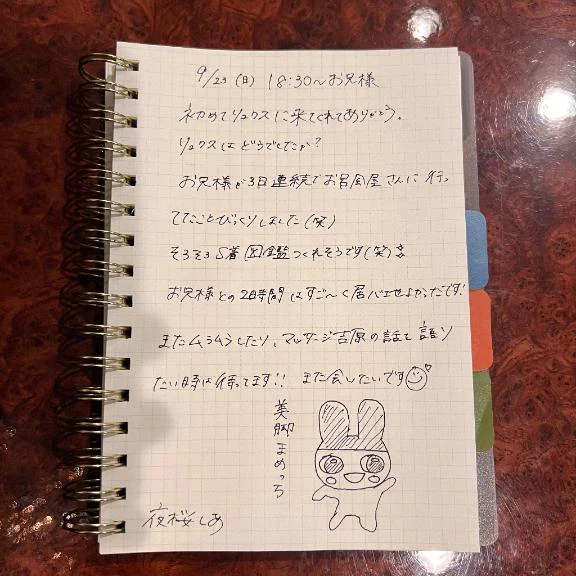 9/23 (日) 18:30〜お兄様
初めてリュクスに来てくれてありがとう。
リュクスはどうでしたか?
お兄様が3日連続でお風呂屋さんに行っ
てたことびっくりしました(笑)
そろそろS着図鑑つくれそうです(笑)
お兄様との2時間はすご〜く居バエせよかったです!
またムラムラしたり、マッサージ吉原の話を語り
たい時は待ってます!! また会いたいです
美脚まめっち
夜桜しあ